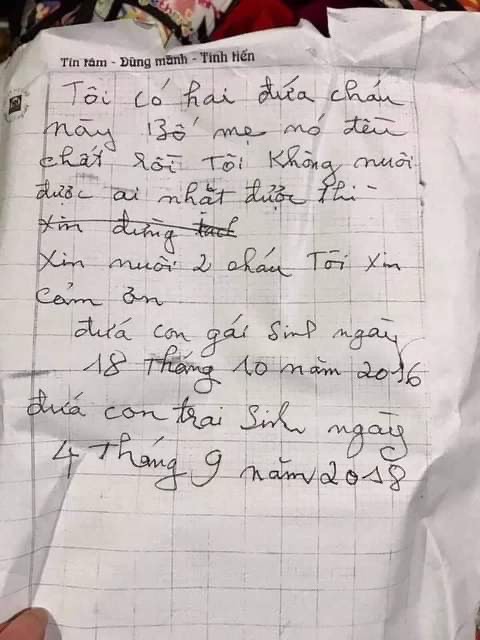 Tín tâm - Dũng mãnh - Tinh tiến
Tôi có hai đứa cháu
này Bố mẹ nó đều
chất rồi Tôi Không nuôi
được ai nhặt được thì
xin đừng tach
Xin nuôi 2 cháu Tôi xin
cảm ơn
đứa con gái sinh ngày
18 tháng 10 năm 2016
đứa con trai sinh ngày
4 Tháng 9 năm 2018